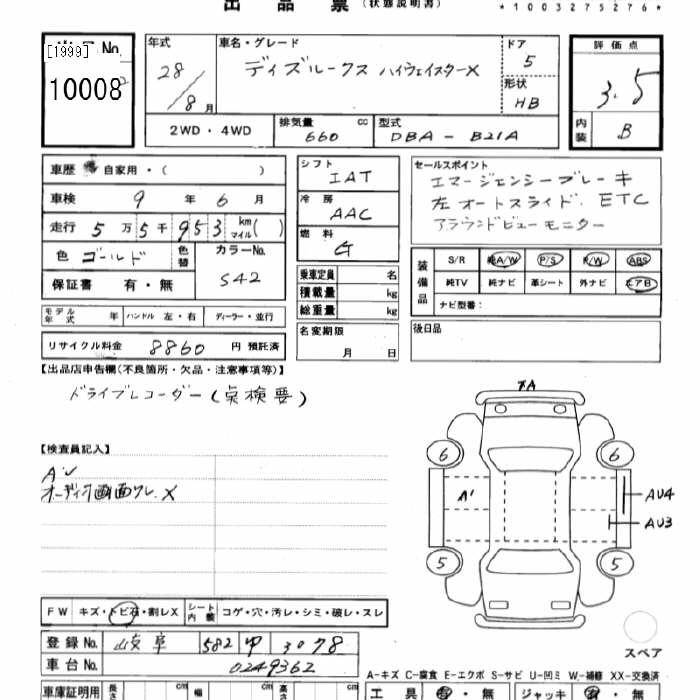 出品票 (状態説明書)
*1003275276*
[1999] No.
10008
年式 28/8月
車名・グレード
ディズルークス ハイウェイスターX
ドア 5
形状 HB
評価点
3.5
内装 B
2WD・4WD
排気量 cc 660
型式 DBA-B21A
車歴 自家用・( )
車検 9年6月
走行 5万5千953 km マイル( )
色 ゴールド
色替
カラーNo. S42
保証書 有・無
シフト IAT
冷房 AAC
燃料 G
乗車定員 名
積載量 kg
総重量 kg
セールスポイント
エマージェンシーブレーキ
左オートスライド. ETC
アラウンドビューモニター
装備品
S/R 純A/W P/S P/W ABS
純TV 純ナビ 革シート 外ナビ エアB
ナビ型番:
モデル年式 年 ハンドル 左・右 ディーラー・並行
リサイクル料金 8860 円 預託済
名変期限 月 日
後日品
【出品店申告欄(不良箇所・欠品・注意事項等)】
ドライブレコーダー(点検要)
【検査員記入】
オーディオ画面ワレ.X
6 6
A'
AU4
AU3
5 5
スペア
FW キズ・トビ石・割レX
シート内装 コゲ・穴・汚レ・シミ・破レ・スレ
登録No. 岐阜 582 3078
車台No. 0249362
A-キズ C-腐食 E-エクボ S-サビ U-凹ミ W-補修 XX-交換済
車庫証明用 長さ cm 幅 cm 高さ cm
工具 ・無 ジャッキ ・無